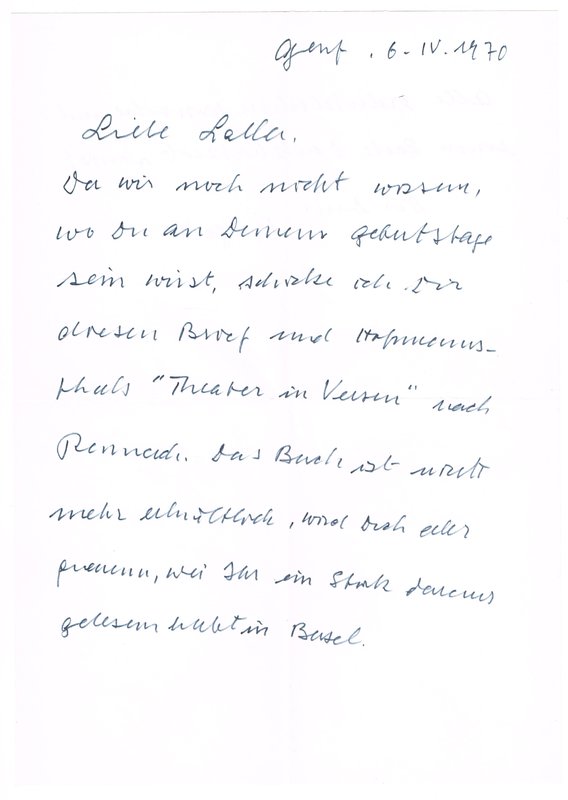 Genf, 6. IV. 1970
Liebe Lalla,
Da wir noch nicht wissen,
wo Du an Deinem Geburtstage
sein wirst, schicke ich Dir
diesen Brief und Hofmanns-
thals "Theater in Versen" nach
Das Buch ist nicht
mehr erhältlich, wird Dich aber
freuen, weil Ihr ein Stück daraus
gelesen habt in Basel.